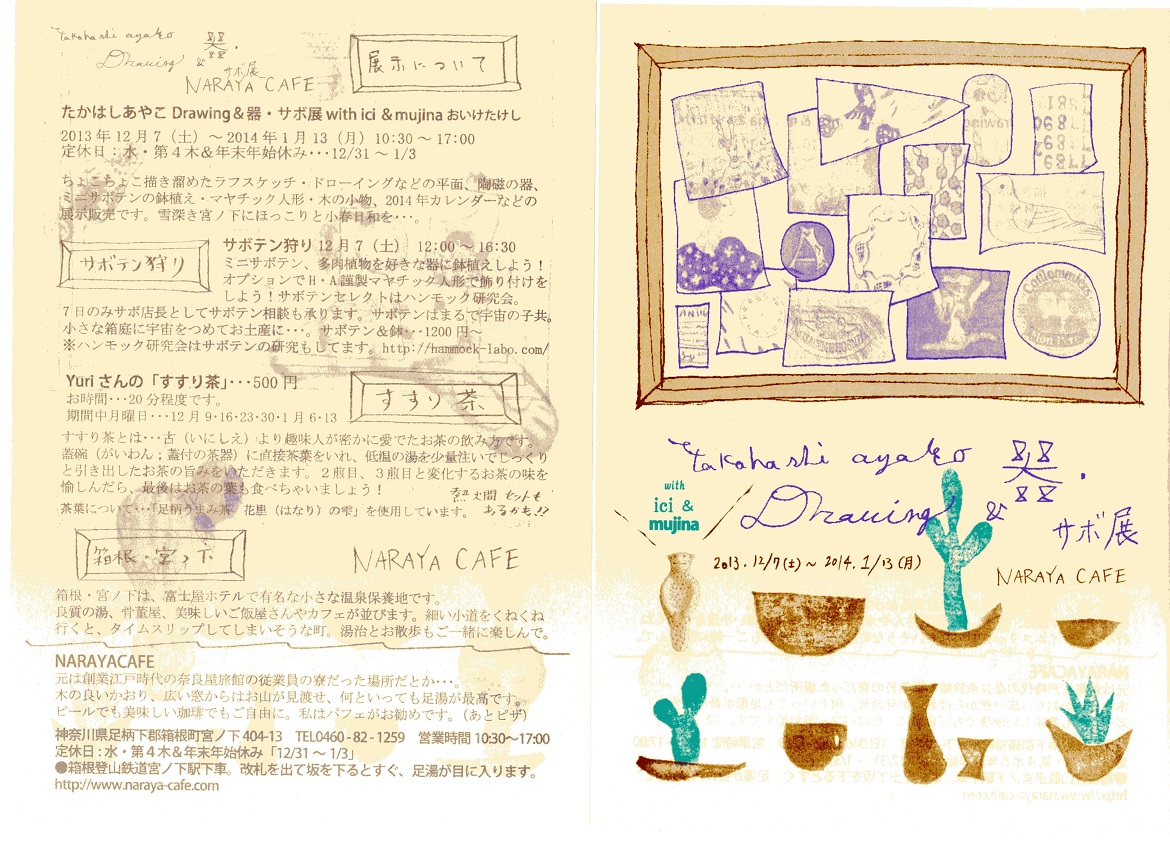 takahashi ayako 器.
Drawing &
サボ展
NARAYA CAFE
展示について
たかはしあやこ Drawing＆器・サボ展 with ici ＆mujina おいけたけし
2013年12月7（土）～2014年1月13（月）10:30～17:00
定休日：水・第４木＆年末年始休み・・・12/31～1/3
ちょこちょこ描き溜めたラフスケッチ・ドローイングなどの平面、陶磁の器、
ミニサボテンの鉢植え・マヤチック人形・木の小物、2014年カレンダーなどの
展示販売です。雪深き宮ノ下にほっこりと小春日和を・・・。
サボテン狩り
サボテン狩り 12月7（土） 12:00～16:30
ミニサボテン、多肉植物を好きな器に鉢植えしよう！
オプションでH・A謹製マヤチック人形で飾り付けを
しよう！サボテンセレクトはハンモック研究会。
7日のみサボ店長としてサボテン相談も承ります。サボテンはまるで宇宙の子共。
小さな箱庭に宇宙をつめてお土産に・・・。サボテン＆鉢・・・1200円～
※ハンモック研究会はサボテンの研究もしてます。http://hammock-labo.com/
Yuriさんの「すすり茶」・・・500円
お時間・・・20分程度です。
期間中月曜日・・・12月9・16・23・30・1月6・13
すすり茶
すすり茶とは・・・古（いにしえ）より趣味人が密かに愛でたお茶の飲み方です。
蓋碗（がいわん；蓋付の茶器）に直接茶葉をいれ、低温の湯を少量注いでじっくり
と引き出したお茶の旨みをいただきます。２煎目、３煎目と変化するお茶の味を
愉しんだら、最後はお茶の葉も食べちゃいましょう！
茶葉について・・・「足柄うまみ茶 花里（はなり）の雫」を使用しています。
セットも
あるかも!?
箱根・宮ノ下
NARAYA CAFE
箱根・宮ノ下は、富士屋ホテルで有名な小さな温泉保養地です。
良質の湯、骨董屋、美味しいご飯屋さんやカフェが並びます。細い小道をくねくね
行くと、タイムスリップしてしまいそうな町。湯治とお散歩もご一緒に楽しんで。
NARAYACAFE
元は創業江戸時代の奈良屋旅館の従業員の寮だった場所だとか・・・。
木の良いかおり、広い窓からはお山が見渡せ、何といっても足湯が最高です。
ビールでも美味しい珈琲でもご自由に。私はパフェがお勧めです。（あとピザ）
神奈川県足柄下郡箱根町宮ノ下404-13 TEL0460-82-1259 営業時間10:30～17:00
定休日：水・第４木＆年末年始休み「12/31～1/3」
●箱根登山鉄道宮ノ下駅下車。改札を出て坂を下るとすぐ、足湯が目に入ります。
http://www.naraya-cafe.com
A
takahashi ayako 器.
with
ici &
mujina
Drawing &
サボ展
2013. 12/7(土)～2014. 1/13(月)
NARAYA CAFE